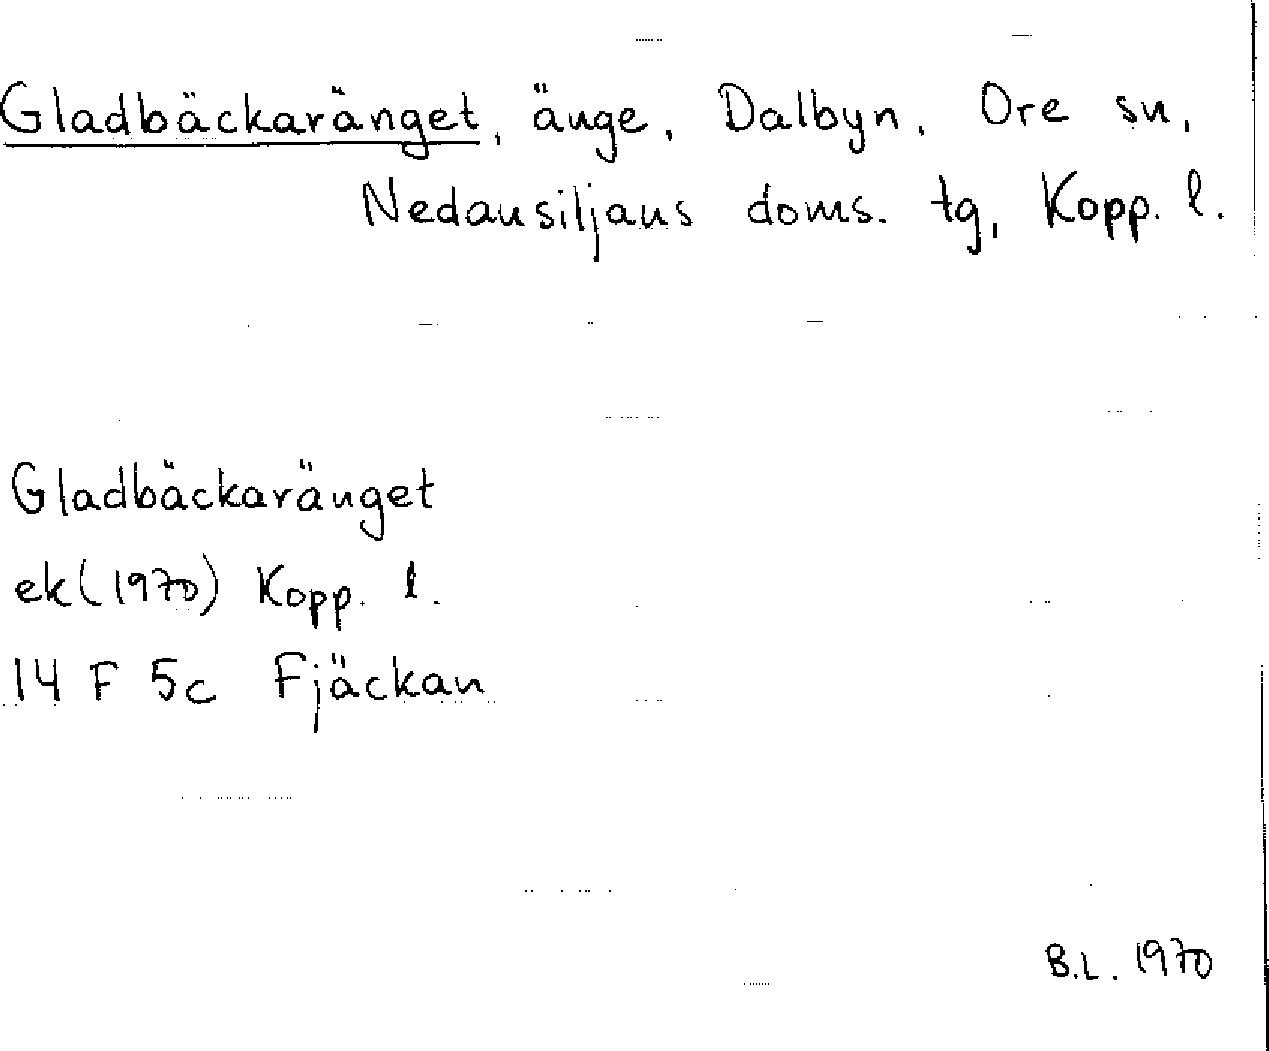 Gladbäckaränget, änge, Dalbyn, Ore sn,
Nedansiljans doms. tg, Kopp. l.
Gladbäckaränget
ek (1970) Kopp. l.
14 F 5c Fjäckan
B.L. 1970